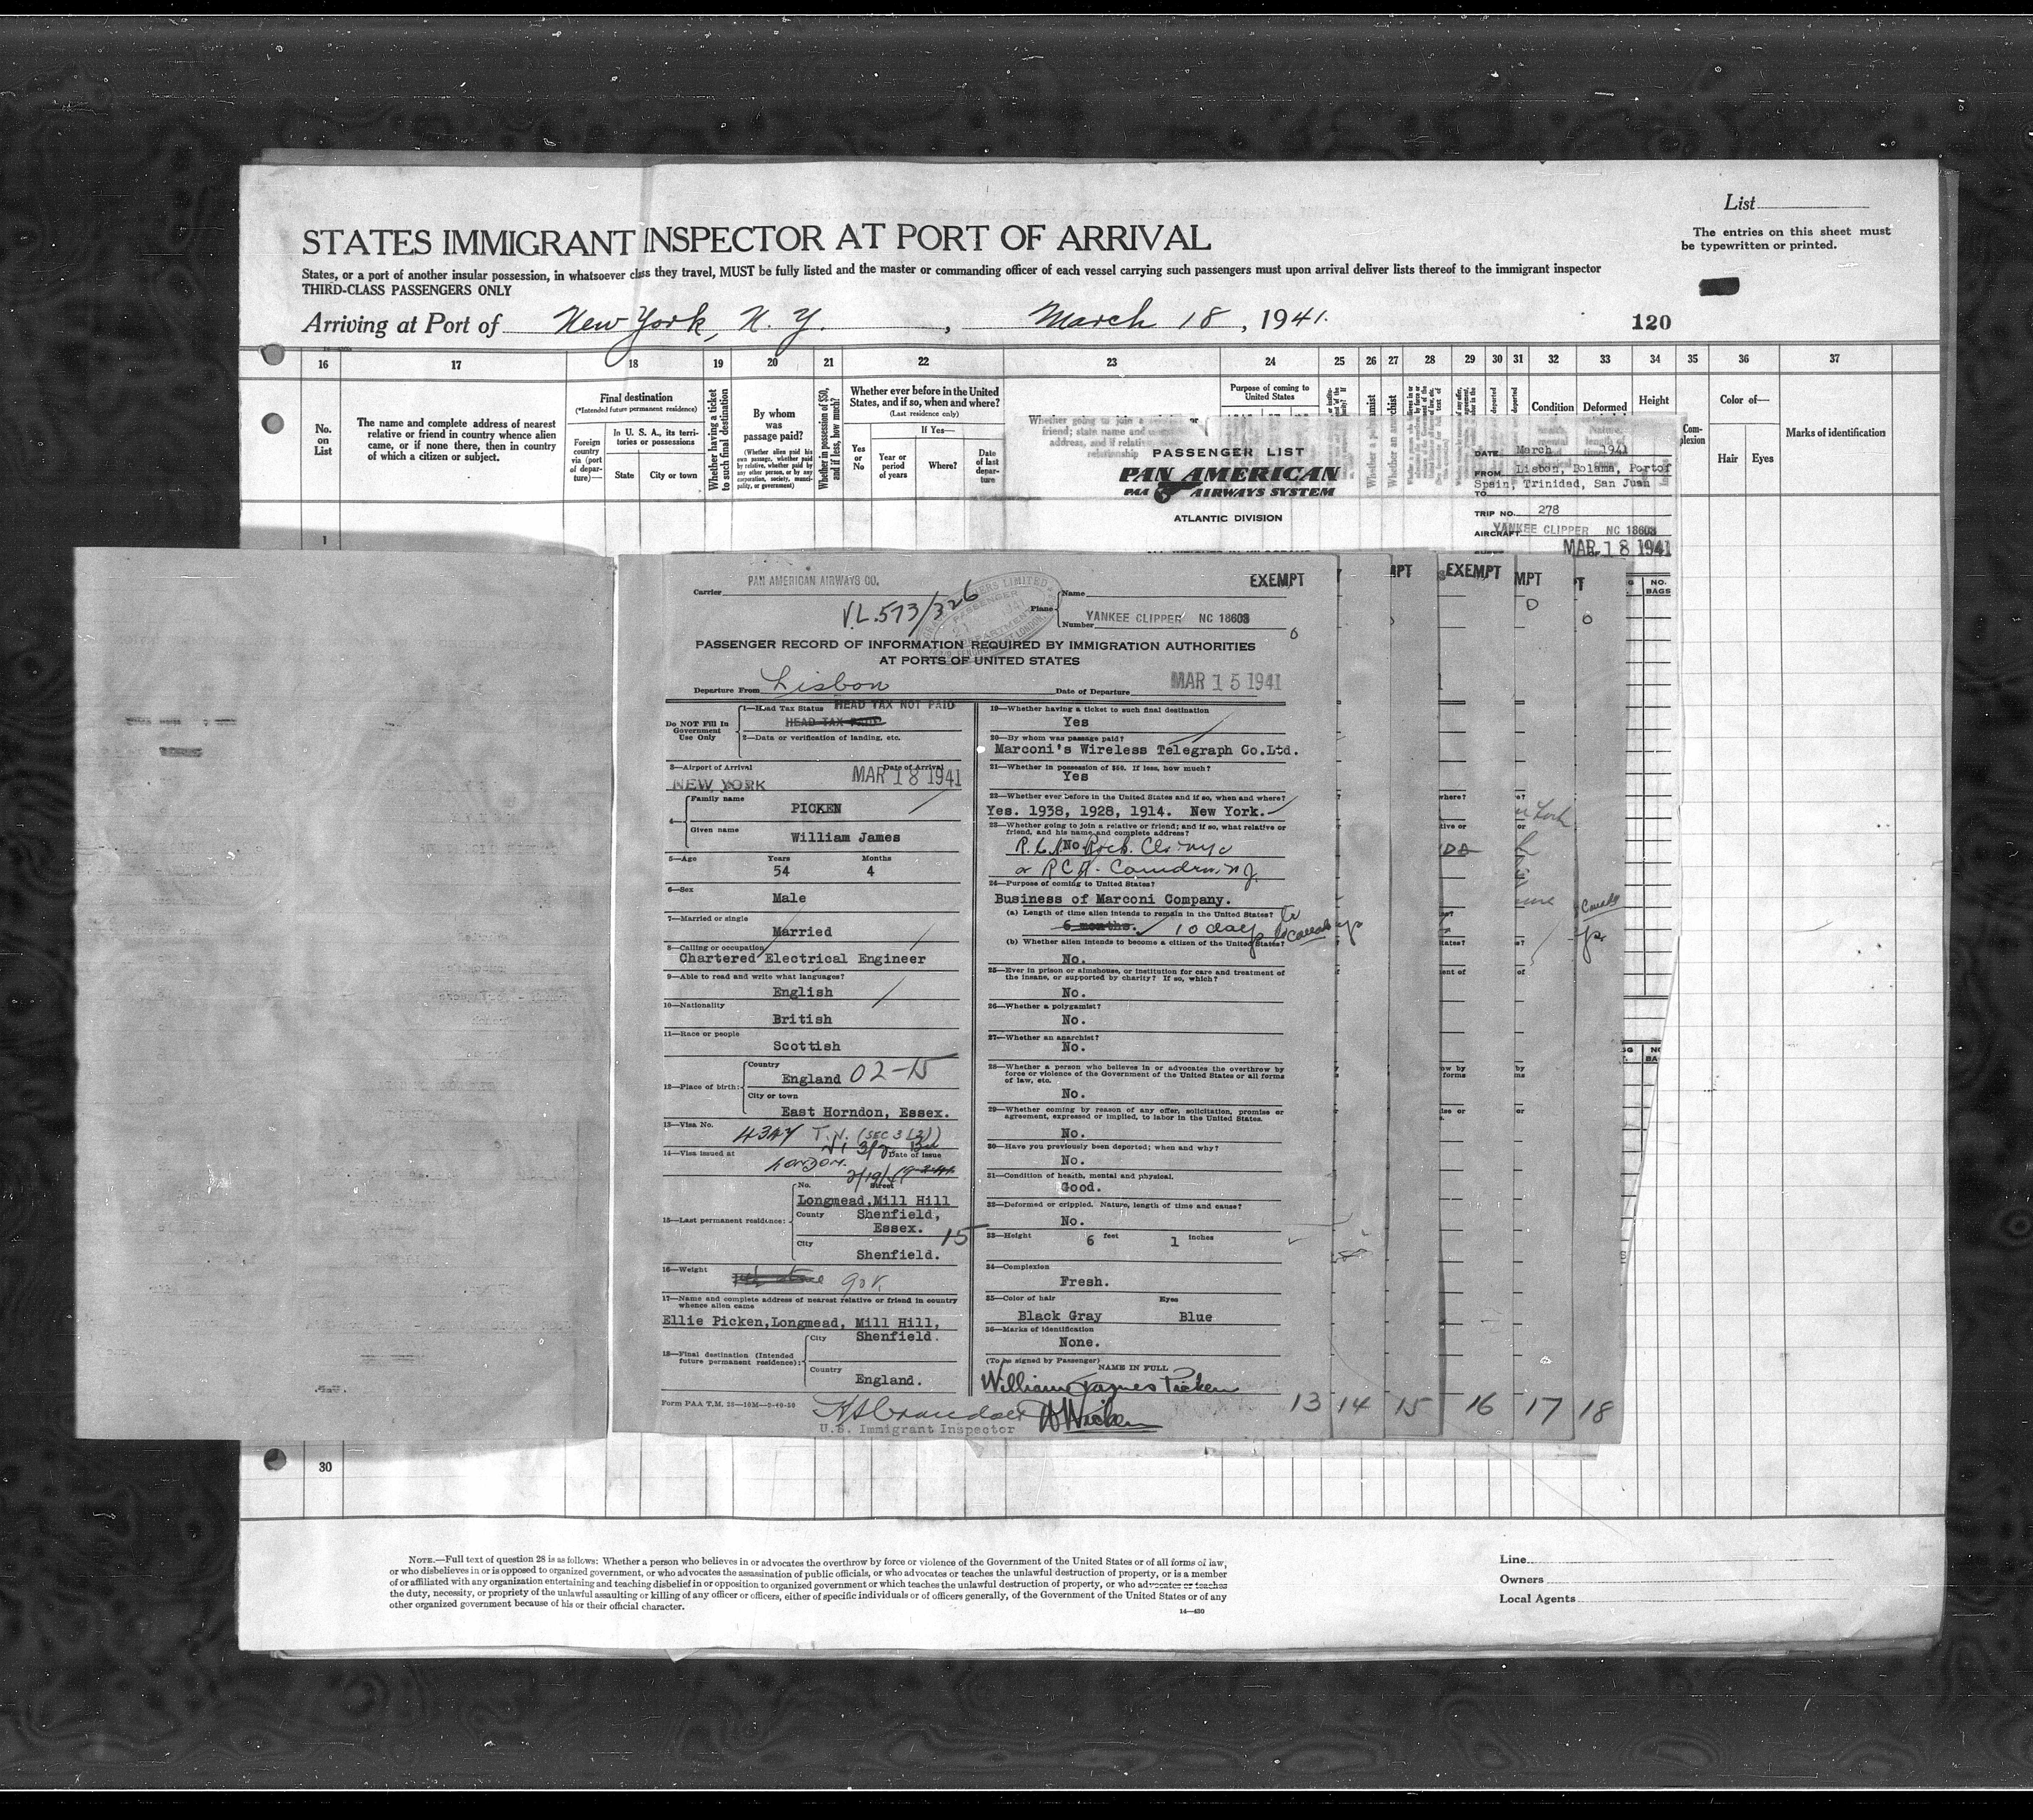 List
The entries on this sheet must
be typewritten or printed.
STATES IMMIGRANT INSPECTOR AT PORT OF ARRIVAL
States, or a port of another insular possession, in whatsoever class they travel, MUST be fully listed and the master or commanding officer of each vessel carrying such passengers must upon arrival deliver lists thereof to the immigrant inspector
THIRD-CLASS PASSENGERS ONLY
Arriving at Port of New York, N. Y. , March 18 , 1941.
120
16 17 18 19 20 21 22 23 24 25 26 27 28 29 30 31 32 33 34 35 36 37
No. on List
The name and complete address of nearest
relative or friend in country whence alien
came, or if none there, then in country
of which a citizen or subject.
Final destination
(*Intended future permanent residence)
Foreign country via (port of departure)—
In U. S. A., its territories or possessions
State
City or town
Whether having a ticket to such final destination
By whom was passage paid?
(Whether alien paid his own passage, whether paid by relative, whether paid by any other person, or by any corporation, society, municipality, or government)
Whether in possession of $50, and if less, how much?
Whether ever before in the United
States, and if so, when and where?
(Last residence only)
Yes or No
If Yes—
Year or period of years
Where?
Date of last departure
Whether going to join a
Purpose of coming to United States
Condition
Deformed
Height
Complexion
Color of—
Hair
Eyes
Marks of identification
PASSENGER LIST
PAN AMERICAN
PAA AIRWAYS SYSTEM
ATLANTIC DIVISION
DATE March 1941
FROM Lisbon, Bolama, Portof
Spain, Trinidad, San Juan
TO
TRIP NO. 278
AIRCRAFT YANKEE CLIPPER NC 18603
MAR 18 1941
NO. BAGS
1
Carrier PAN AMERICAN AIRWAYS CO.
V.L.573/326
EXEMPT
Plane
Name
Number YANKEE CLIPPER NC 18603
PASSENGER RECORD OF INFORMATION REQUIRED BY IMMIGRATION AUTHORITIES
AT PORTS OF UNITED STATES
Departure From Lisbon
Date of Departure MAR 15 1941
Do NOT Fill In
Government
Use Only
1—Head Tax Status HEAD TAX NOT PAID
HEAD TAX PAID
2—Data or verification of landing, etc.
3—Airport of Arrival
NEW YORK
Date of Arrival
MAR 18 1941
4—
Family name
PICKEN
Given name
William James
5—Age
Years
54
Months
4
6—Sex
Male
7—Married or single
Married
8—Calling or occupation
Chartered Electrical Engineer
9—Able to read and write what languages?
English
10—Nationality
British
11—Race or people
Scottish
12—Place of birth:
Country
England 02-15
City or town
East Horndon, Essex.
13—Visa No.
4347 T.V. (SEC 3 (2))
14—Visa issued at
London.
Date of Issue
15—Last permanent residence:
No. Street
Longmead,Mill Hill
County Shenfield,
Essex. 15
City
Shenfield.
16—Weight
17—Name and complete address of nearest relative or friend in country
whence alien came
Ellie Picken,Longmead, Mill Hill,
Shenfield.
18—Final destination (Intended
future permanent residence):
City
Country
England.
Form PAA T.M. 28—10M—9-40-50
U.S. Immigrant Inspector
19—Whether having a ticket to such final destination
Yes
20—By whom was passage paid?
Marconi's Wireless Telegraph Co.Ltd.
21—Whether in possession of $50. If less, how much?
Yes
22—Whether ever before in the United States and if so, when and where?
Yes. 1938, 1928, 1914. New York.
23—Whether going to join a relative or friend; and if so, what relative or
friend, and his name and complete address?
No
or RCA. Camden, N.J.
24—Purpose of coming to United States?
Business of Marconi Company.
(a) Length of time alien intends to remain in the United States?
6 months. 10 days to Canada
(b) Whether alien intends to become a citizen of the United States?
No.
25—Ever in prison or almshouse, or institution for care and treatment of
the insane, or supported by charity? If so, which?
No.
26—Whether a polygamist?
No.
27—Whether an anarchist?
No.
28—Whether a person who believes in or advocates the overthrow by
force or violence of the Government of the United States or all forms
of law, etc.
No.
29—Whether coming by reason of any offer, solicitation, promise or
agreement, expressed or implied, to labor in the United States.
No.
30—Have you previously been deported; when and why?
No.
31—Condition of health, mental and physical.
Good.
32—Deformed or crippled. Nature, length of time and cause?
No.
33—Height
6 feet 1 inches
34—Complexion
Fresh.
35—Color of hair
Black Gray
Eyes
Blue
36—Marks of identification
None.
(To be signed by Passenger)
NAME IN FULL
William James Picken
EXEMPT
13 14 15 16 17 18
30
NOTE.—Full text of question 28 is as follows: Whether a person who believes in or advocates the overthrow by force or violence of the Government of the United States or of all forms of law,
or who disbelieves in or is opposed to organized government, or who advocates the assassination of public officials, or who advocates or teaches the unlawful destruction of property, or is a member
of or affiliated with any organization entertaining and teaching disbelief in or opposition to organized government or which teaches the unlawful destruction of property, or who advocates or teaches
the duty, necessity, or propriety of the unlawful assaulting or killing of any officer or officers, either of specific individuals or of officers generally, of the Government of the United States or of any
other organized government because of his or their official character.
14—430
Line
Owners
Local Agents